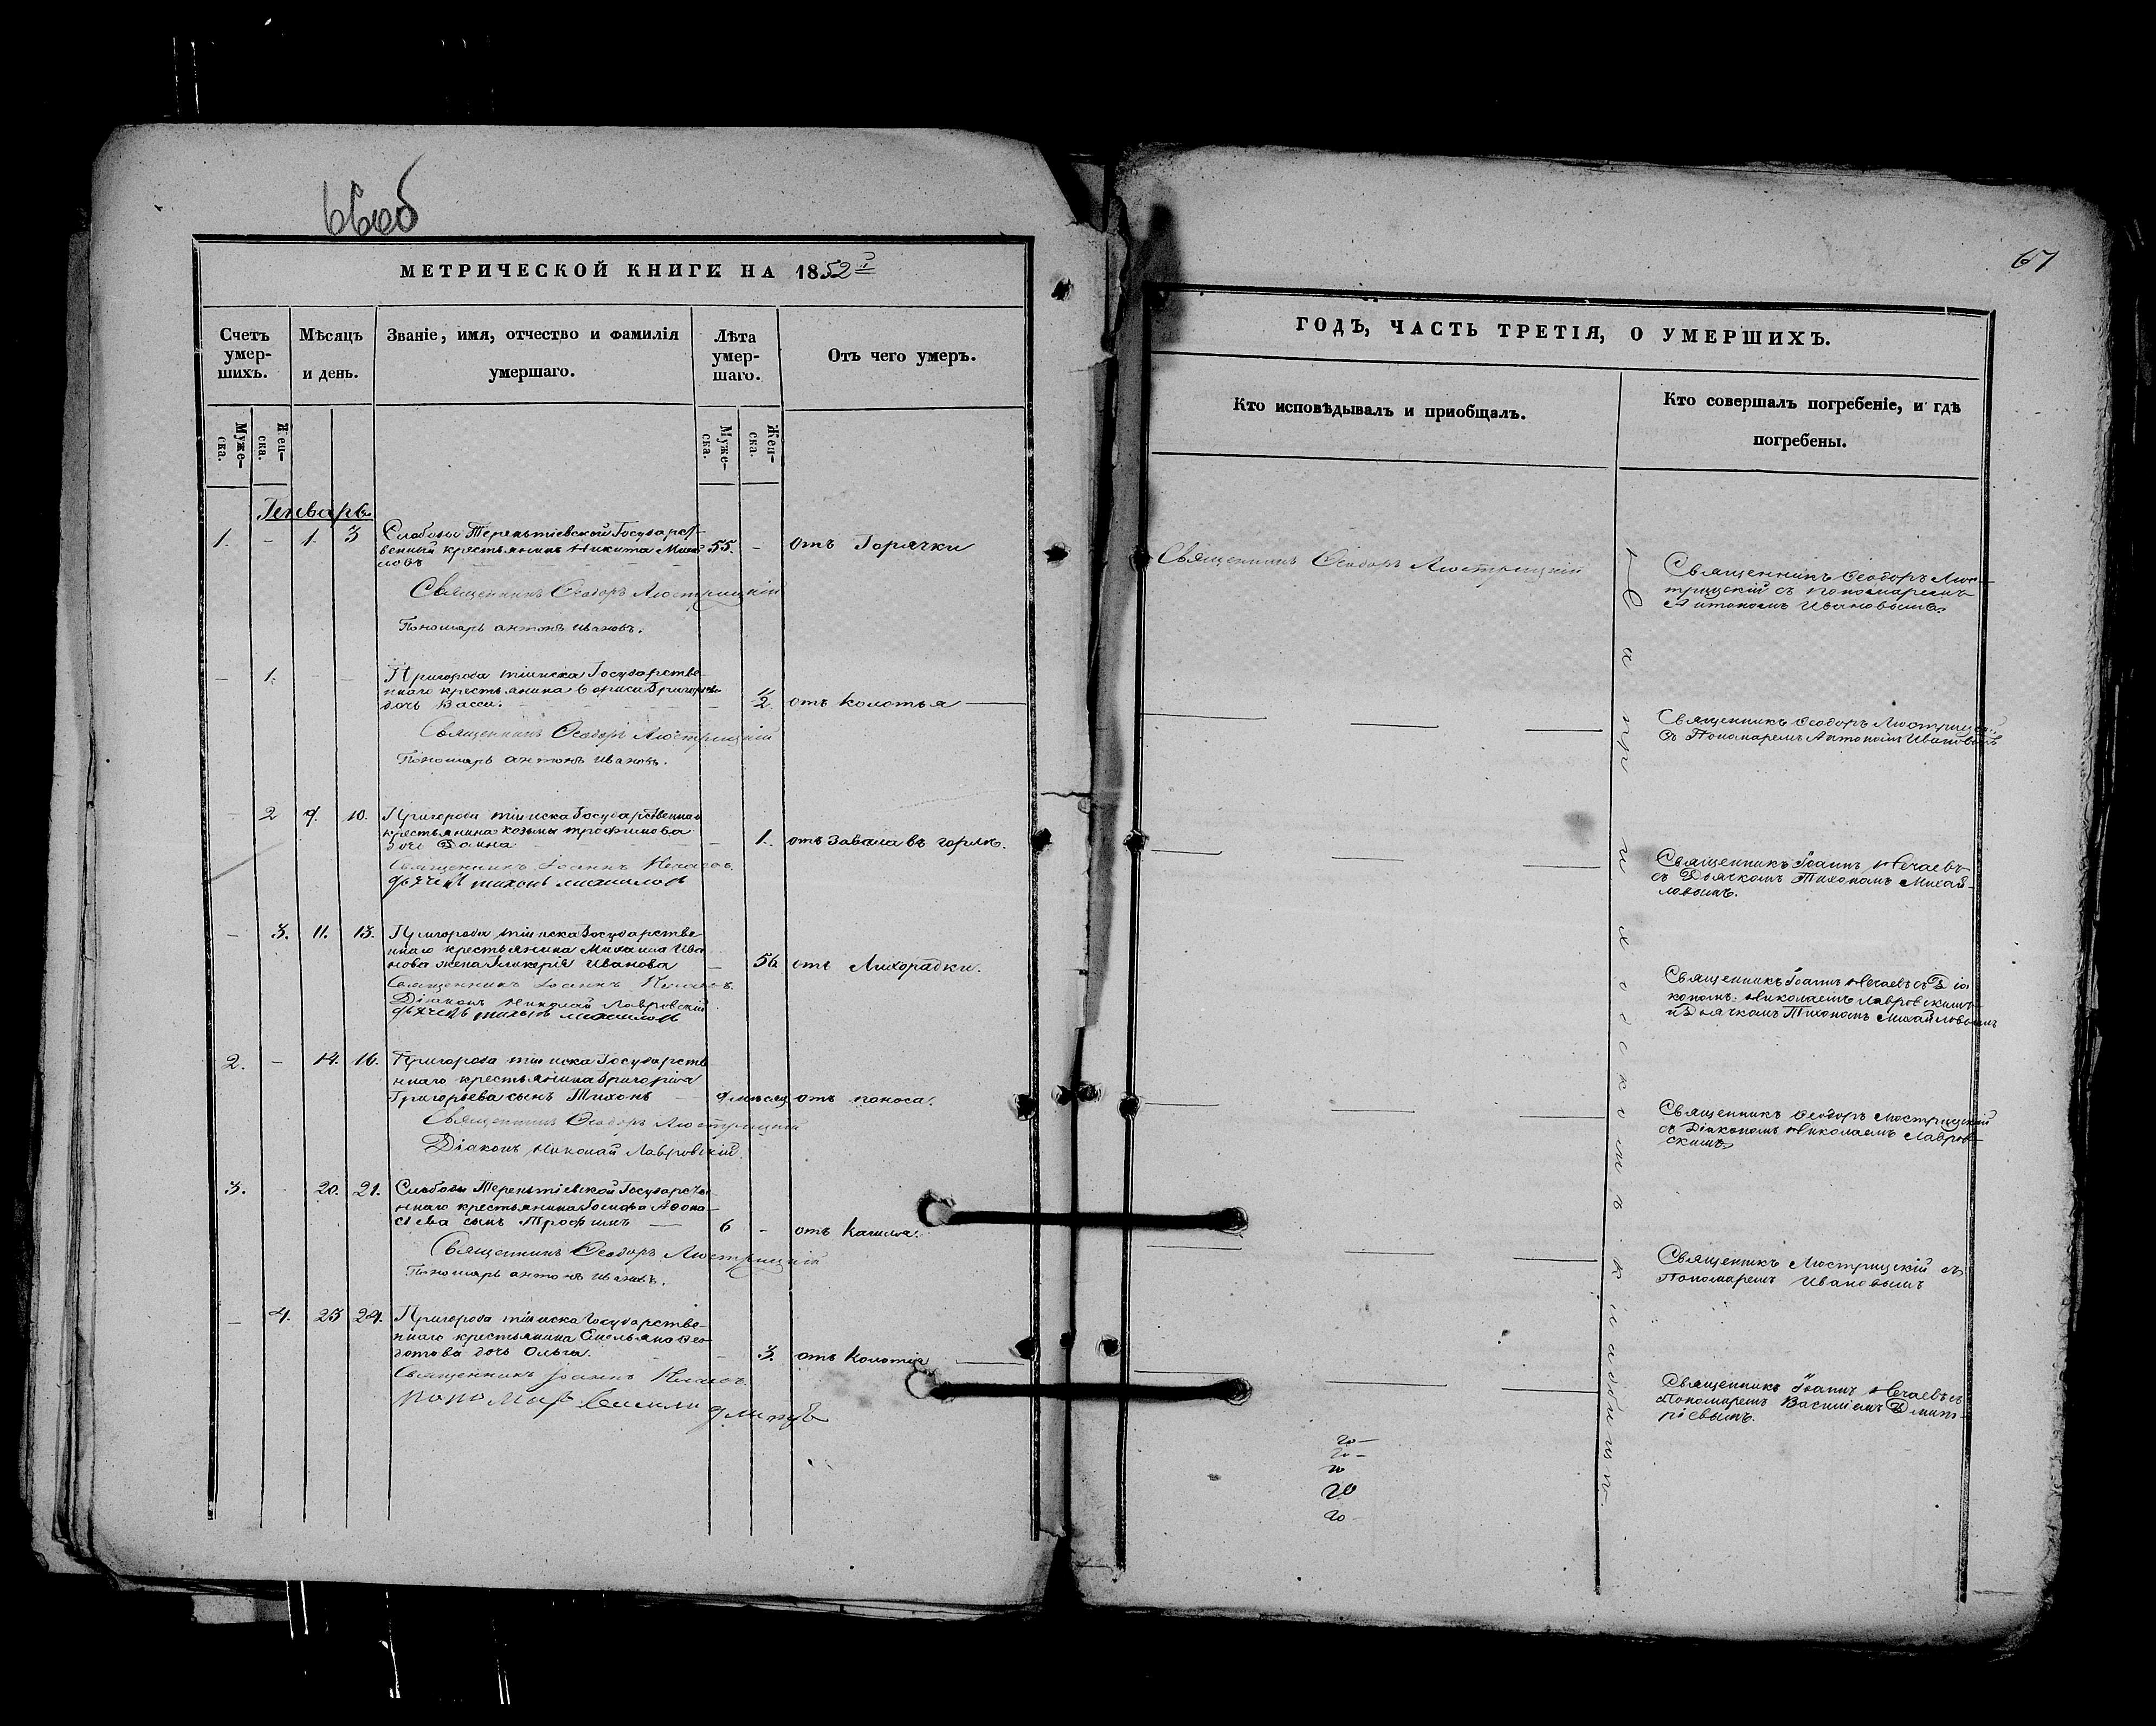 66об
МЕТРИЧЕСКОЙ КНИГИ НА 1852й
Счетъ умер-шихъ.
Мѣсяцъ и день.
Званіе, имя, отчество и фамилія умершаго.
Лѣта умер-шаго.
Отъ чего умеръ.
Муже-ска.
Жен-ска.
Муже-ска.
Жен-ска.
Генварь
1. - 1. 3 Слободы Терентіевской Государст-
венный крестьянинъ Никита 55. - отъ Горячки
ловъ
Священникъ Ѳеодоръ Люстрицкій
Пономарь антонъ ивановъ.
- 1. - - Пригорода тіинска Государстве-
ннаго крестьянина бориса Григорьева
дочь Васса. - 1/2 отъ колотья
Священникъ Ѳеодоръ Люстрицкій
Пономарь антонъ ивановъ.
- 2 9. 10. Пригорода тіинска Государственнаго
крестьянина козьмы трофимова
дочь Домна - 1. отъ завала въ горлѣ.
Священникъ Іоаннъ Нечаевъ.
дьячекъ тихонъ михаиловъ
- 3. 11. 13. Пригорода тіинска Государстве-
ннаго крестьянина Михаила Ива
нова жена Гликерія Иванова - 56 отъ Лихорадки.
Священникъ Іоаннъ Нечаевъ.
Діаконъ Николай Лавровскій
дьячекъ тихонъ михаиловъ
2. - 14. 16. Пригорода тіинска Государстве
ннаго крестьянина Григорія
Григорьева сынъ Тихонъ 9 мѣсяц отъ поноса.
Священникъ Ѳеодоръ Люстрицкій
Діаконъ Николай Лавровскій.
3. - 20. 21. Слободы Терентіевской Государстве
ннаго крестьянина Іосифа Аѳона-
сіева сынъ Трофимъ 6 - отъ Кашля.
Священникъ Ѳеодоръ Люстрицкій
Пономарь антонъ ивановъ.
- 4. 23 24. Пригорода тіинска Государстве-
ннаго крестьянина Емельяна Ѳео
дотова дочь Ольга. - 3. отъ Колотія
Священникъ Іоаннъ Нечаевъ.
пономарь василии
67
ГОДЪ, ЧАСТЬ ТРЕТІЯ, О УМЕРШИХЪ.
Кто исповѣдывалъ и пріобщалъ.
Кто совершалъ погребеніе, и гдѣ погребены.
Священникъ Ѳеодоръ Люстрицкій
Священникъ Ѳеодоръ Люс-
трицскій съ пономаремъ
Антономъ Ивановымъ.
Священникъ Ѳеодоръ Люстрицскій
съ Пономаремъ Антономъ Ивановымъ
Священникъ Іоаннъ Нечаевъ
съ Дьячкомъ Тихономъ Михай-
ловымъ.
Священникъ Іоаннъ Нечаевъ съ Діа
кономъ Николаемъ Лавровскимъ
и Дьячкомъ Тихономъ Михайловымъ
Священникъ Ѳеодоръ Люстрицскій
съ Діакономъ Николаемъ Лавров-
скимъ
Священникъ Люстрицскій съ
Пономаремъ Ивановымъ
Священникъ Іоаннъ Нечаевъ съ
Пономаремъ Василіемъ Дмит-
ріевымъ.
На приходскомъ кладбищѣ
20
20
20
20
20